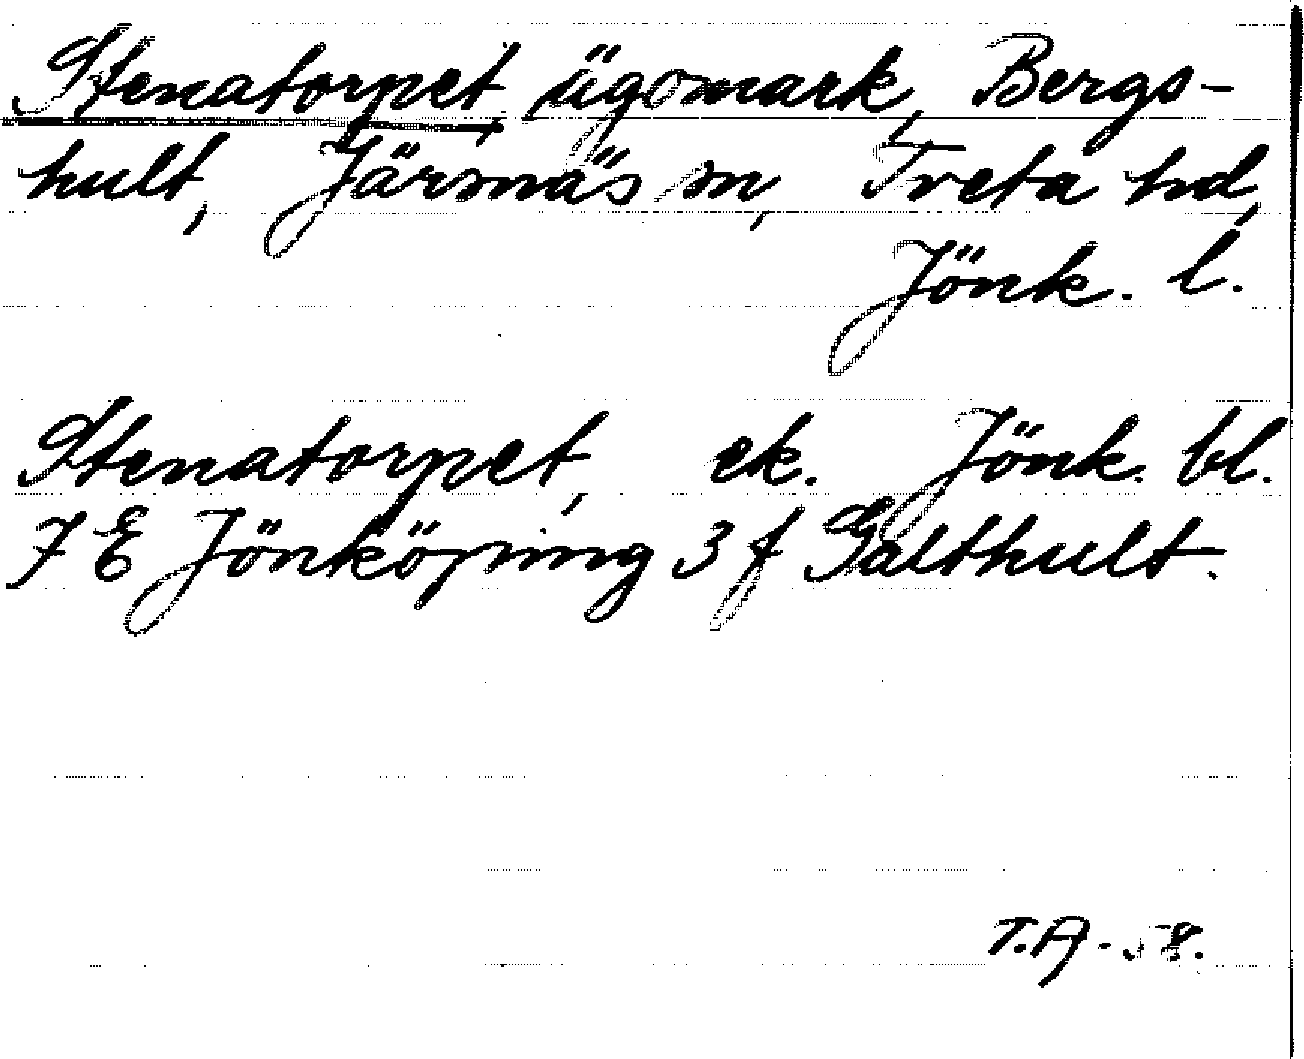 Stenatorpet, ägomark, Bergs-
hult, Järsnäs sn, Tveta hd,
Jönk. l.
Stenatorpet, ek. Jönk. bl.
7 E Jönköping 3 f Galthult.
T.A. -58.